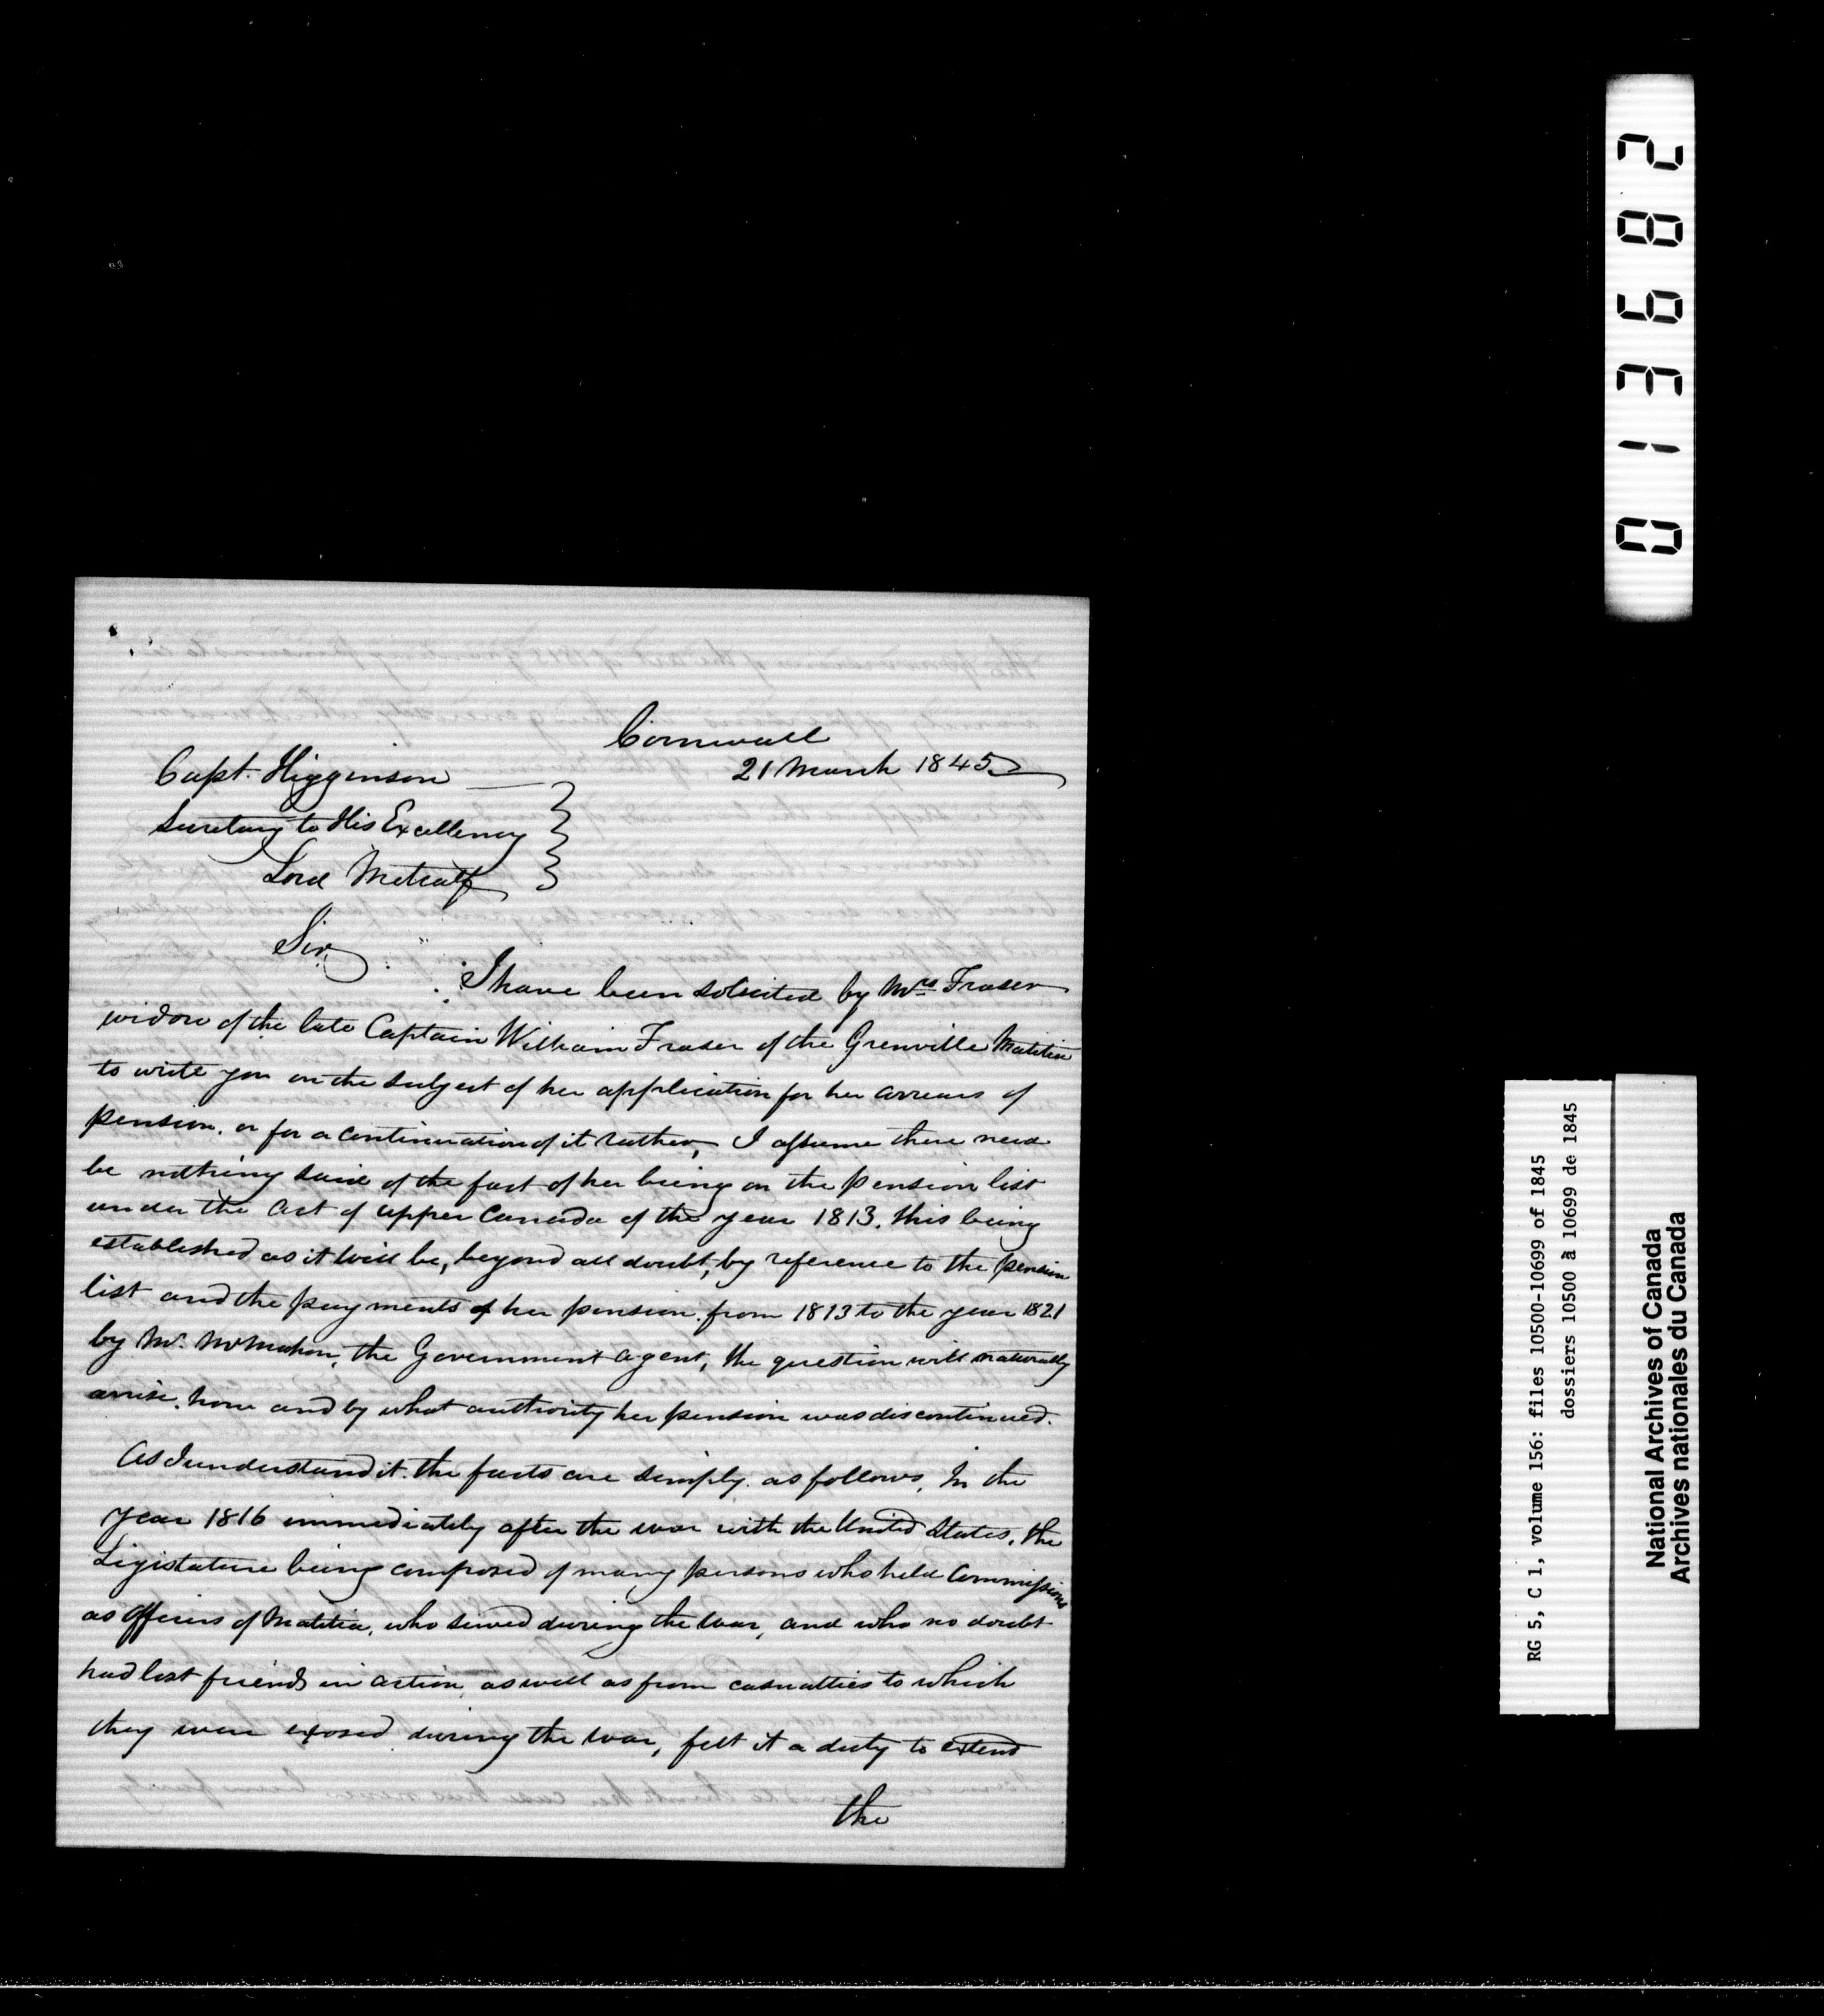 Cornwall
21 March 1845
Capt. Higginson
Secretary to His Excellency
Lord Metcalf
Sir,
I have been solicited by Mrs Fraser
widow of the late Captain William Fraser of the Grenville Militia
to write you on the subject of her application for her arrears of
pension. or for a continuation of it rather, I assume there need
be nothing said of the fact of her being on the pension list
under the Act of Upper Canada of the year 1813. this being
established as it will be, beyond all doubt, by reference to the pension
list and the payments of her pension from 1813 to the year 1821
by Mr. McMahon, the Government Agent, the question will naturally
arrise. how and by what authority her pension was discontinued.
As I understand it. the facts are simply as follows, In the
year 1816 immediately after the war with the United States, the
Legistature being composed of many persons who held Commissions
as Officers of Militia, who served during the war, and who no doubt
had lost friends in action, as well as from casualties to which
they were exposed during the war, felt it a duty to extend
the
013682
RG 5, C 1, volume 156: files 10500-10699 of 1845
dossiers 10500 à 10699 de 1845
National Archives of Canada
Archives nationales du Canada